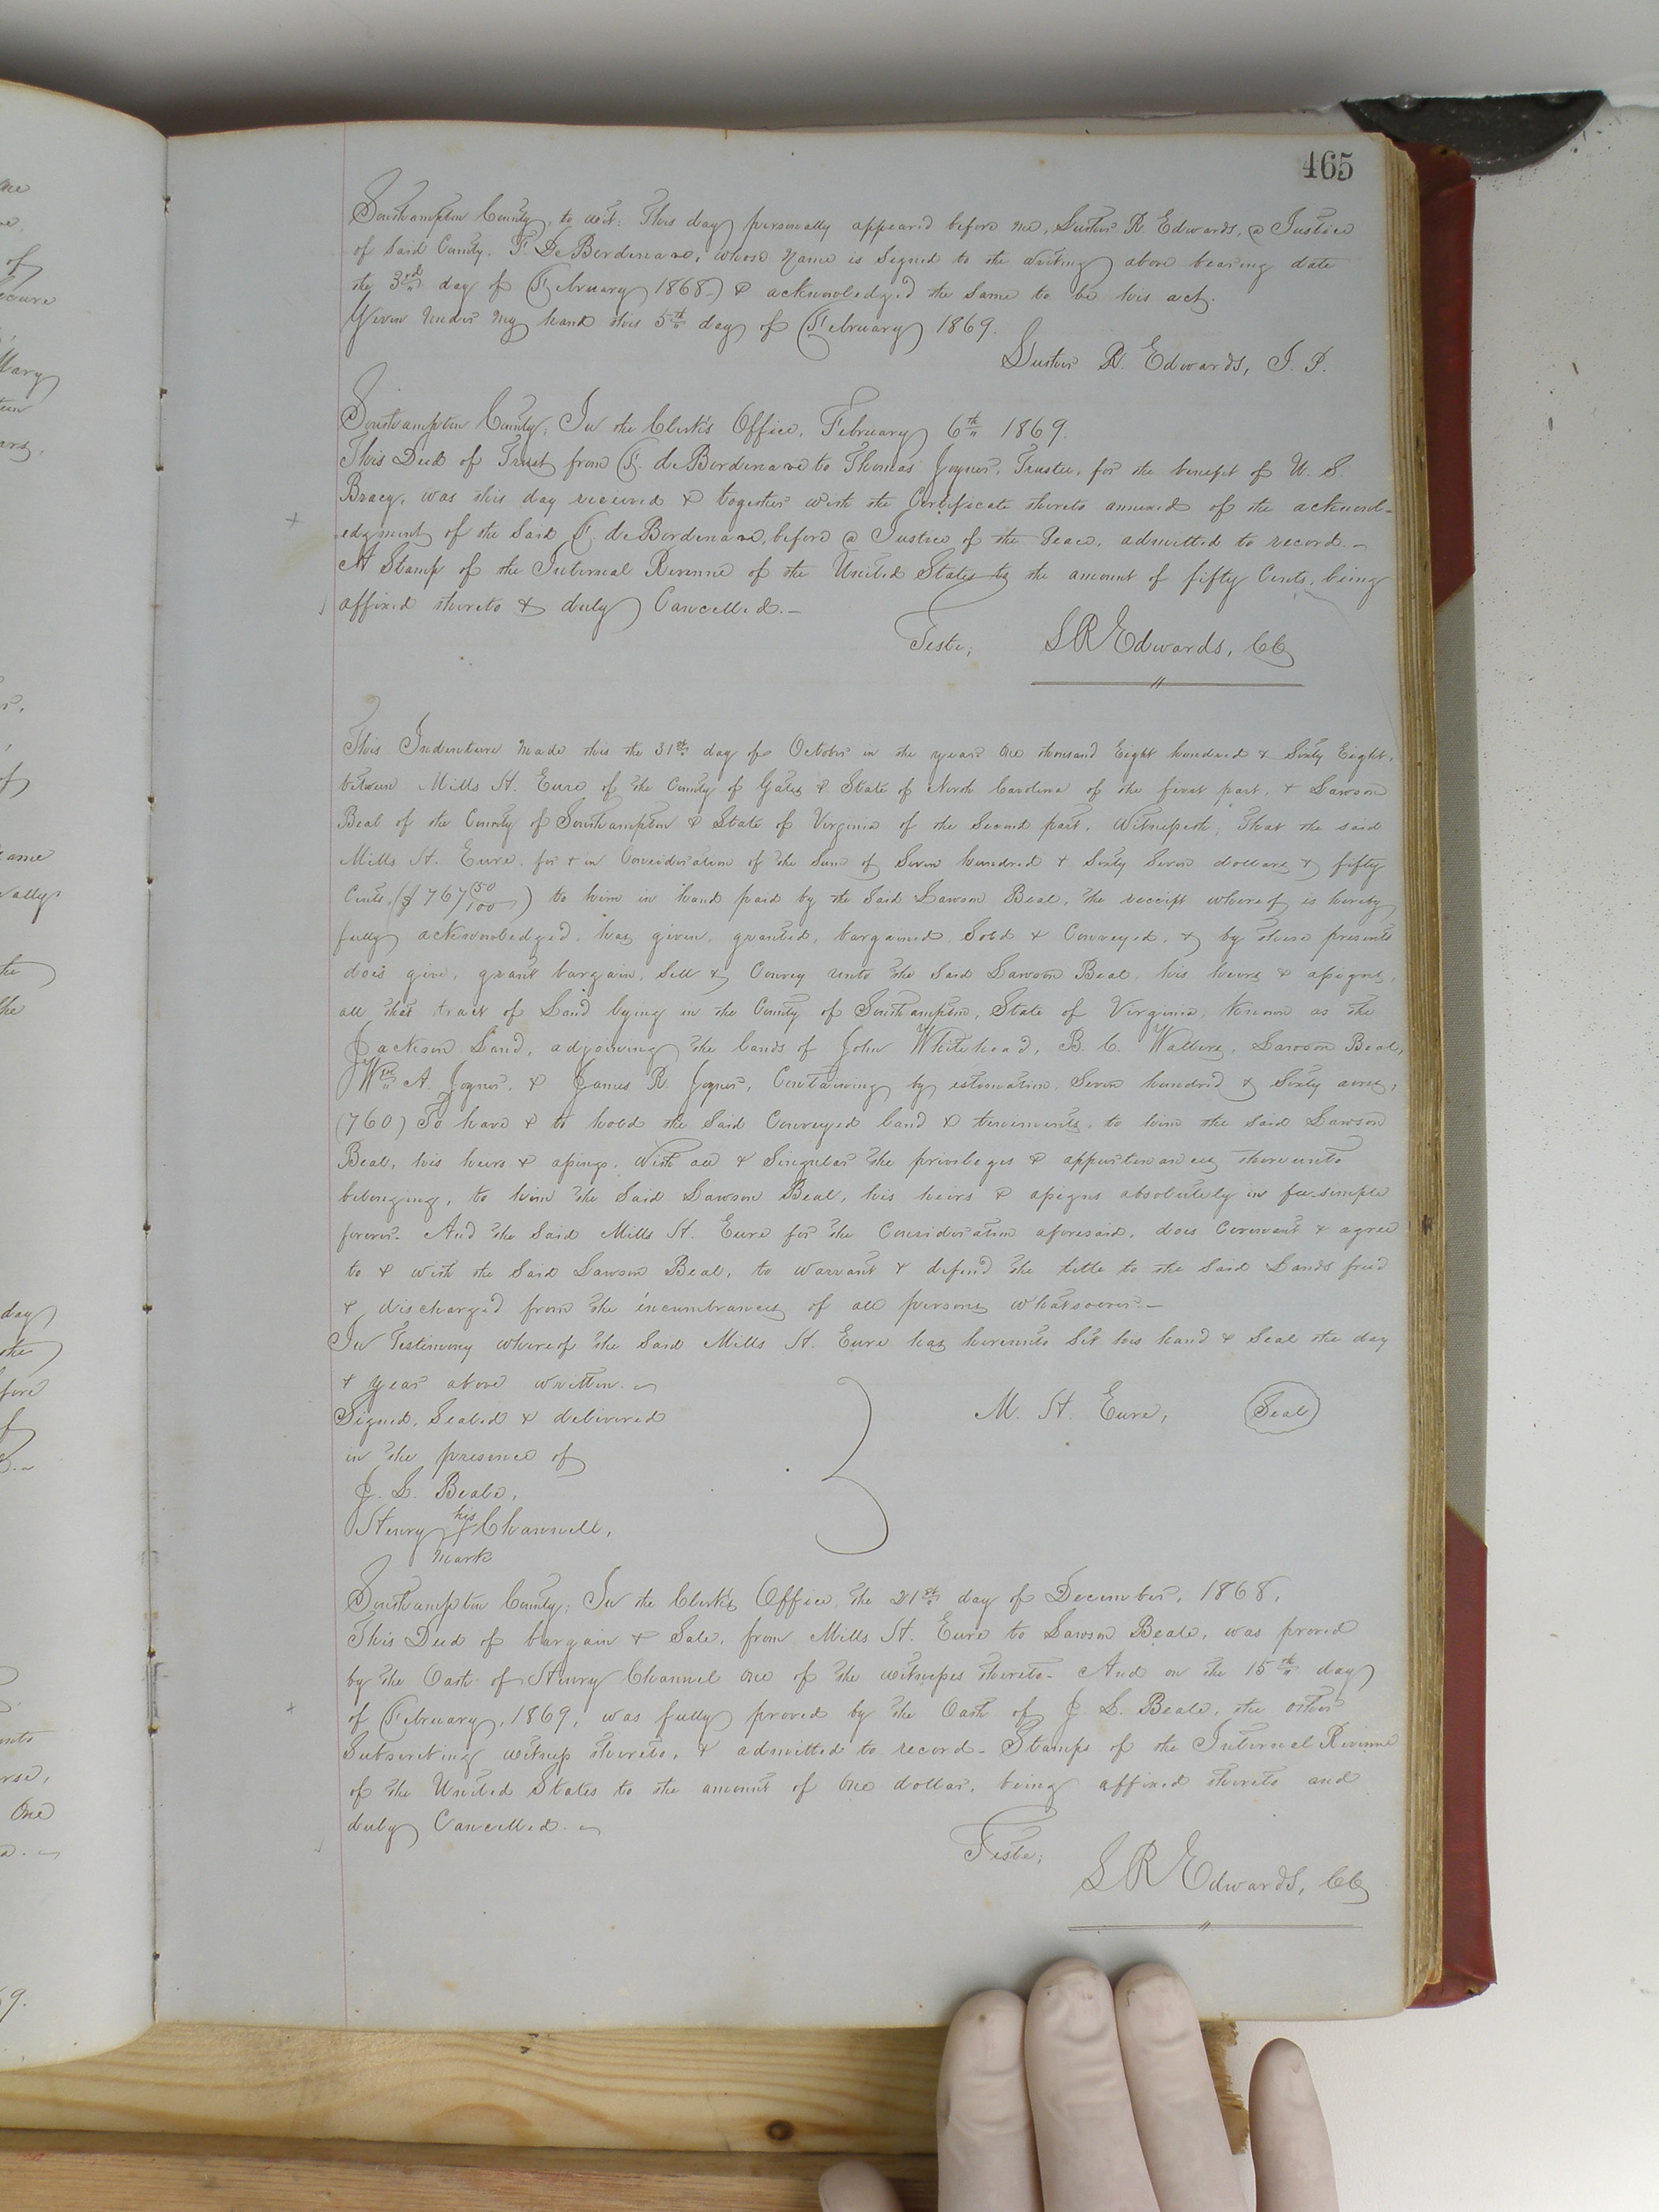 465
Southampton County, to wit: This day personally appeared before me, Liston R. Edwards, a Justice
of said County. F. DeBordenave, whose name is signed to the writing above bearing date
the 3rd day of February 1868 & acknowledged the same to be his act.
Given under my hand this 5th day of February 1869.
R. Edwards, J. P.
Southampton County, In the Clerk's Office, February 6th 1869.
This Deed of Trust from F. deBordenave to Thomas Joyner, Trustee, for the benefit of U. S.
Bracy, was this day received & together with the Certificate thereto annexed of the acknowl-
edgment of the said F. deBordenave, before a Justice of the Peace, admitted to record.-
A Stamp of the Internal Revenue of the United States to the amount of fifty Cents, being
affixed thereto & duly Cancelled.-
Teste, L R Edwards, CC
This Indenture made this the 31st day of October in the year One thousand Eight hundred & Sixty Eight,
between Mills H. Eure of the County of Gates & State of North Carolina of the first part, & Lawson
Beal of the County of Southampton & State of Virginia of the Second part, Witnesseth, That the said
Mills H. Eure, for & in Consideration of the Sum of Seven hundred & Sixty Seven dollars & fifty
Cents, ($767 50/100) to him in hand paid by the Said Lawson Beal, the receipt whereof is hereby
fully acknowledged, has given, granted, bargained, Sold & Conveyed, & by these presents
does give, grant bargain, Sell & Convey unto the Said Lawson Beal, his heirs & assigns,
all that tract of Land lying in the County of Southampton, State of Virginia, known as the
Jackson Land, adjoining the lands of John Whitehead, B. C. Wallers, Lawson Beal,
Wm A. Joyner, & James R. Joyner, Containing by estimation, Seven hundred & Sixty acres,
(760) To have & to hold the Said Conveyed land & tenements, to him the Said Lawson
Beal, his heirs & assings, With all & Singular the privileges & appurtenances thereunto
belonging, to him the Said Lawson Beal, his heirs & assigns absolutely in fee-simple
forever. And the Said Mills H. Eure for the Consideration aforesaid, does Covenant & agree
to & with the Said Lawson Beal, to warrant & defend the title to the Said Lands freed
& discharged from the incumbrances of all persons whatsoever.-
In Testimony whereof the Said Mills H. Eure has hereunto Set his hand & Seal the day
& year above written.
Signed, Sealed & delivered M. H. Eure, Seal
in the presence of
J. L. Beale,
his
Henry Channell,
mark
Southampton County; In the Clerk's Office, the 21st day of December, 1868,
This Deed of bargain & Sale, from Mills H. Eure to Lawson Beale, was proved
by the Oath of Henry Channel one of the witnesses thereto. And on the 15th day
of February, 1869, was fully proved by the Oath of J. L. Beale, the other
Subscribing witness thereto, & admitted to record. Stamps of the Internal Revenue
of the United States to the amount of One dollar, being affixed thereto and
duly Cancelled.
Teste, L R Edwards, CC